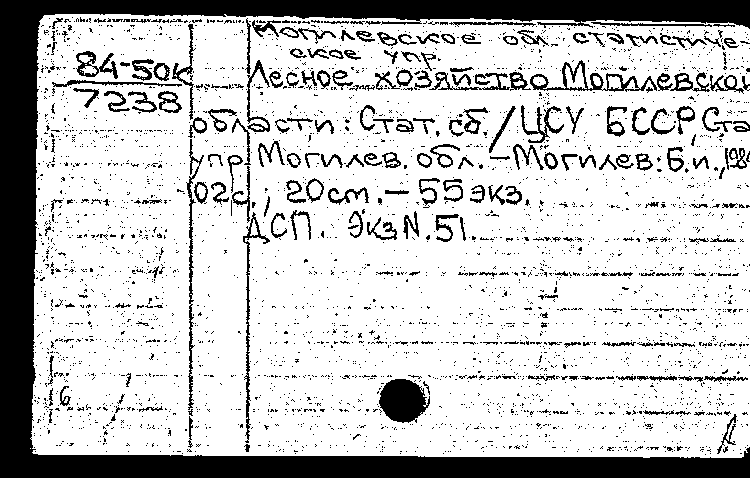 Могилевское обл. статистиче-
ское упр.
84-50к
7238
Лесное хозяйство Могилевской
области: Стат. сб. / ЦСУ БССР, Ста
упр. Могилев. обл. - Могилев: Б.и.,
02с.; 20см. - 55 экз.
ДСП. Экз N. 51.
6